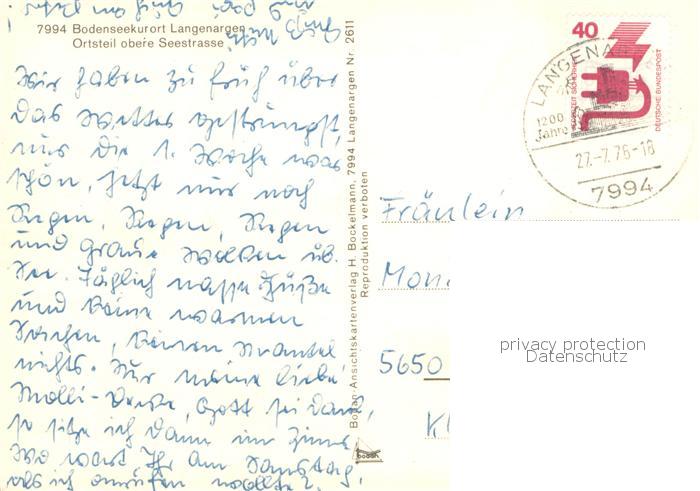 7994 Bodenseekurort Langenargen
Ortsteil obere Seestrasse
Wir haben zu früh über
das Wetter geschimpft,
nur die 1. Woche war
schön, jetzt nur noch
Regen, Regen, Regen
und graue Wolken üb.
See. Täglich nasse Füße
und keine warmen
Sachen, keinen Mantel
nichts. Nur meine liebe
Molli-Decke, Gott sei Dank,
so sitze ich dann im Zimmer
Wo wart Ihr am Samstag,
als ich anrufen wollte?
Bodan-Ansichtskartenverlag H. Bockelmann, 7994 Langenargen Nr. 2611
Reproduktion verboten
bodan
40
DEUTSCHE BUNDESPOST
JEDERZEIT SICHERHEIT
LANGENAR
1200
Jahre
27.-7.76-18
7994
Fräulein
Mon
5650
privacy protection
Datenschutz